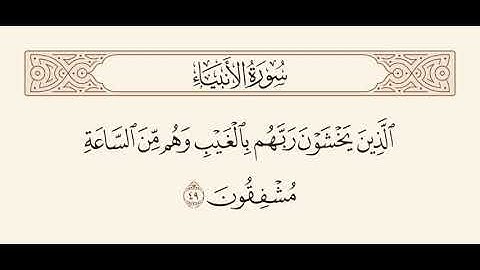 سُورَةُ الأَنبِيَاءِ
ٱلَّذِينَ يَخۡشَوۡنَ رَبَّهُم بِٱلۡغَيۡبِ وَهُم مِّنَ ٱلسَّاعَةِ
مُشۡفِقُونَ ٤٩